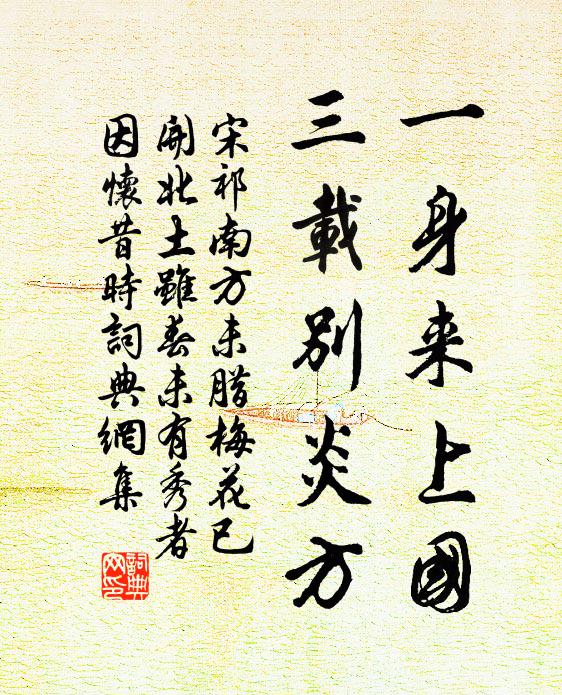 一身来上國
三載别炎方
宋祁南方未腊梅花已
開北土雖春未有秀者
因懷昔時詞典網集
詞典网印